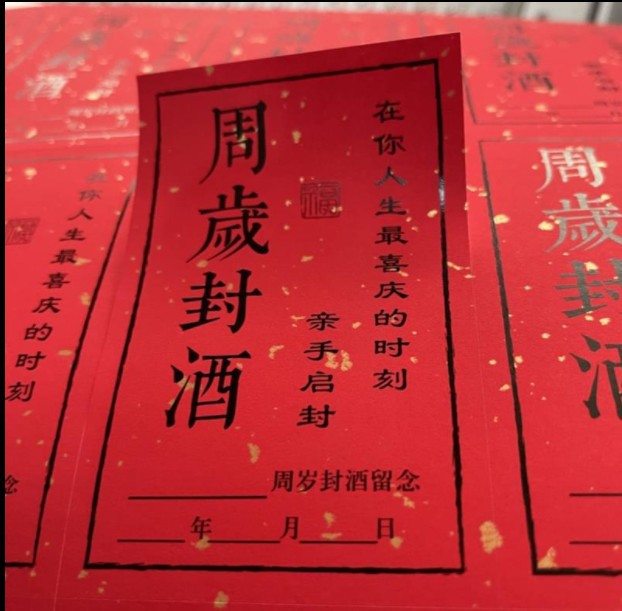 在你人生最喜庆的时刻
亲手启封
福
周歲封酒
______周岁封酒留念
____年____月____日
在你人生最喜庆的时刻
周歲封酒
念
封酒